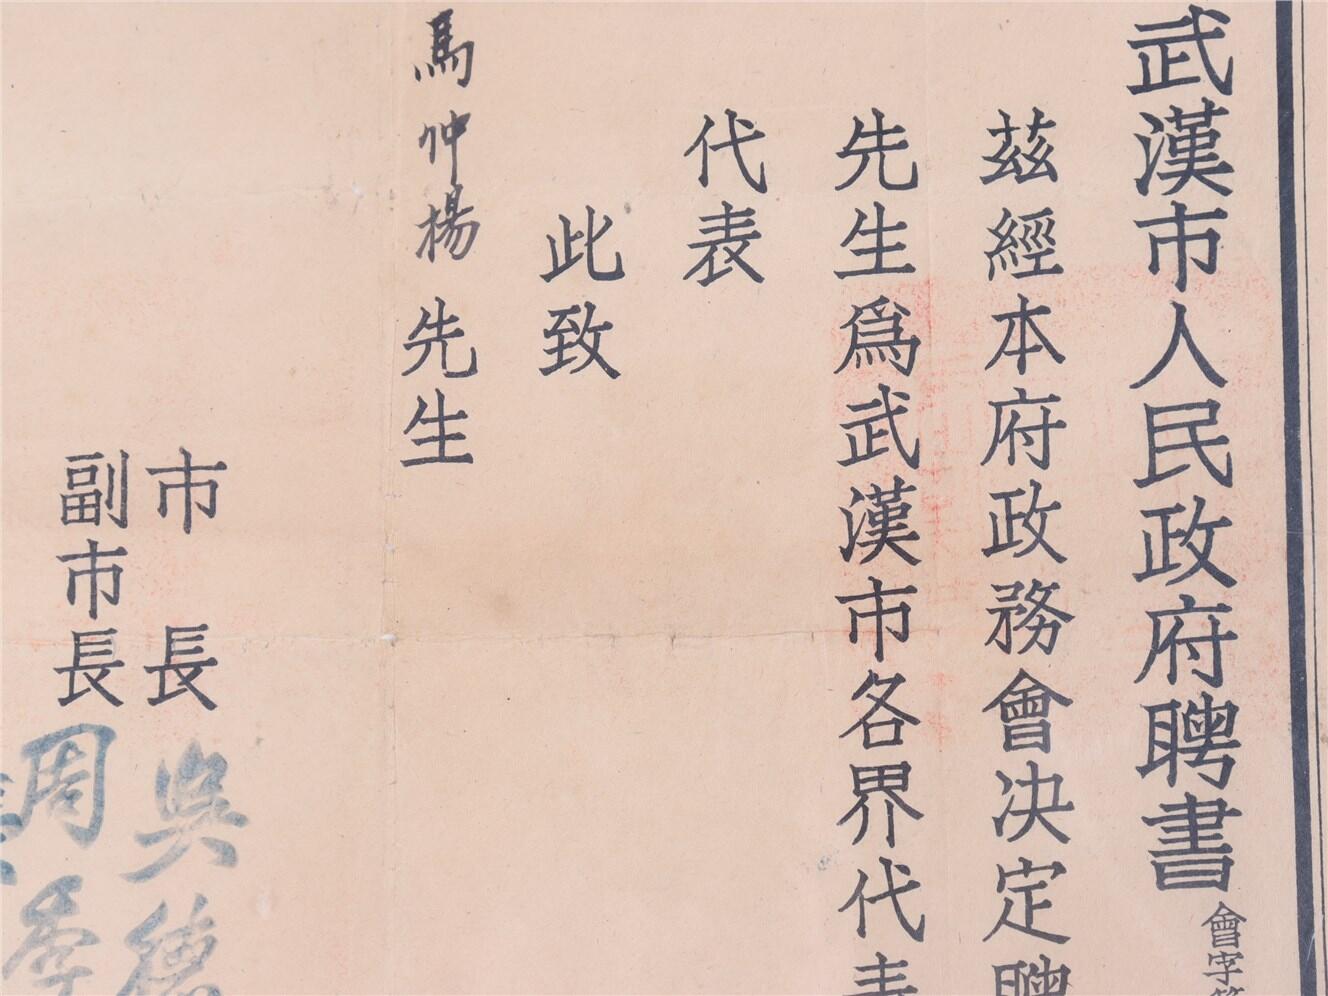 武漢市人民政府聘書
會字第
茲經本府政務會決定聘
先生爲武漢市各界代表
代表
此致
馬仲楊 先生
市 長 吳德
副市長 周季